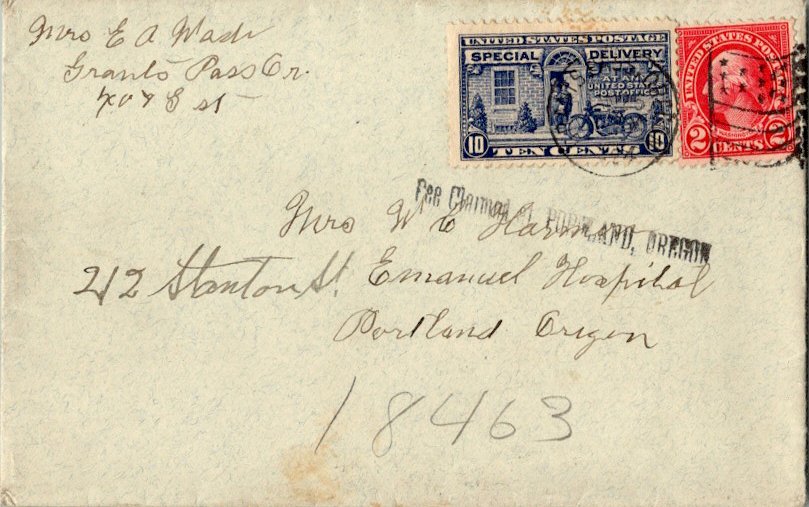 Mrs E A Wade
Grants Pass Or.
709 E st
UNITED STATES POSTAGE
SPECIAL DELIVERY
AT ANY
UNITED STATES
POST OFFICE
10 10
TEN CENTS
UNITED STATES POSTAGE
2 CENTS 2
Fee Claimed at PORTLAND, OREGON
Mrs W E
212 Stanton St. Emanuel Hospital
Portland Oregon
18463